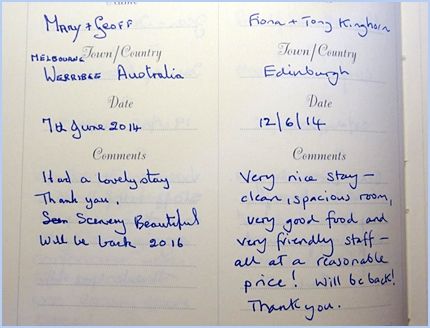 Name
Mary + Geoff
Town/Country
MELBOURNE
WERRIBEE Australia
Date
7th June 2014
Comments
Had a lovely stay
Thank you.
Seen Scenery Beautiful
Will be back 2016
Name
Fiona + Tony Kinghorn
Town/Country
Edinburgh
Date
12/6/14
Comments
Very nice stay —
clean, spacious room,
very good food and
very friendly staff —
all at a reasonable
price! Will be back!
Thank you.